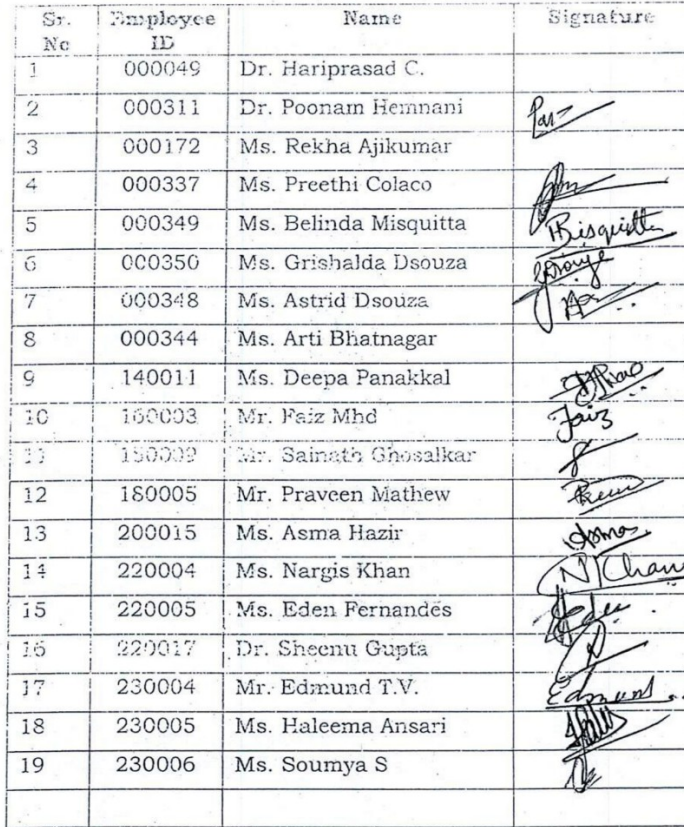 Sr. No Employee ID Name Signature
1 000049 Dr. Hariprasad C.
2 000311 Dr. Poonam Hemnani
3 000172 Ms. Rekha Ajikumar
4 000337 Ms. Preethi Colaco
5 000349 Ms. Belinda Misquitta BMisquitta
6 000350 Ms. Grishalda Dsouza GDsouza
7 000348 Ms. Astrid Dsouza
8 000344 Ms. Arti Bhatnagar
9 140011 Ms. Deepa Panakkal
10 160003 Mr. Faiz Mhd Faiz
11 180009 Mr. Sainath Ghosalkar
12 180005 Mr. Praveen Mathew
13 200015 Ms. Asma Hazir Asma
14 220004 Ms. Nargis Khan
15 220005 Ms. Eden Fernandes Eden
16 220017 Dr. Sheenu Gupta
17 230004 Mr. Edmund T.V. Edmund
18 230005 Ms. Haleema Ansari
19 230006 Ms. Soumya S